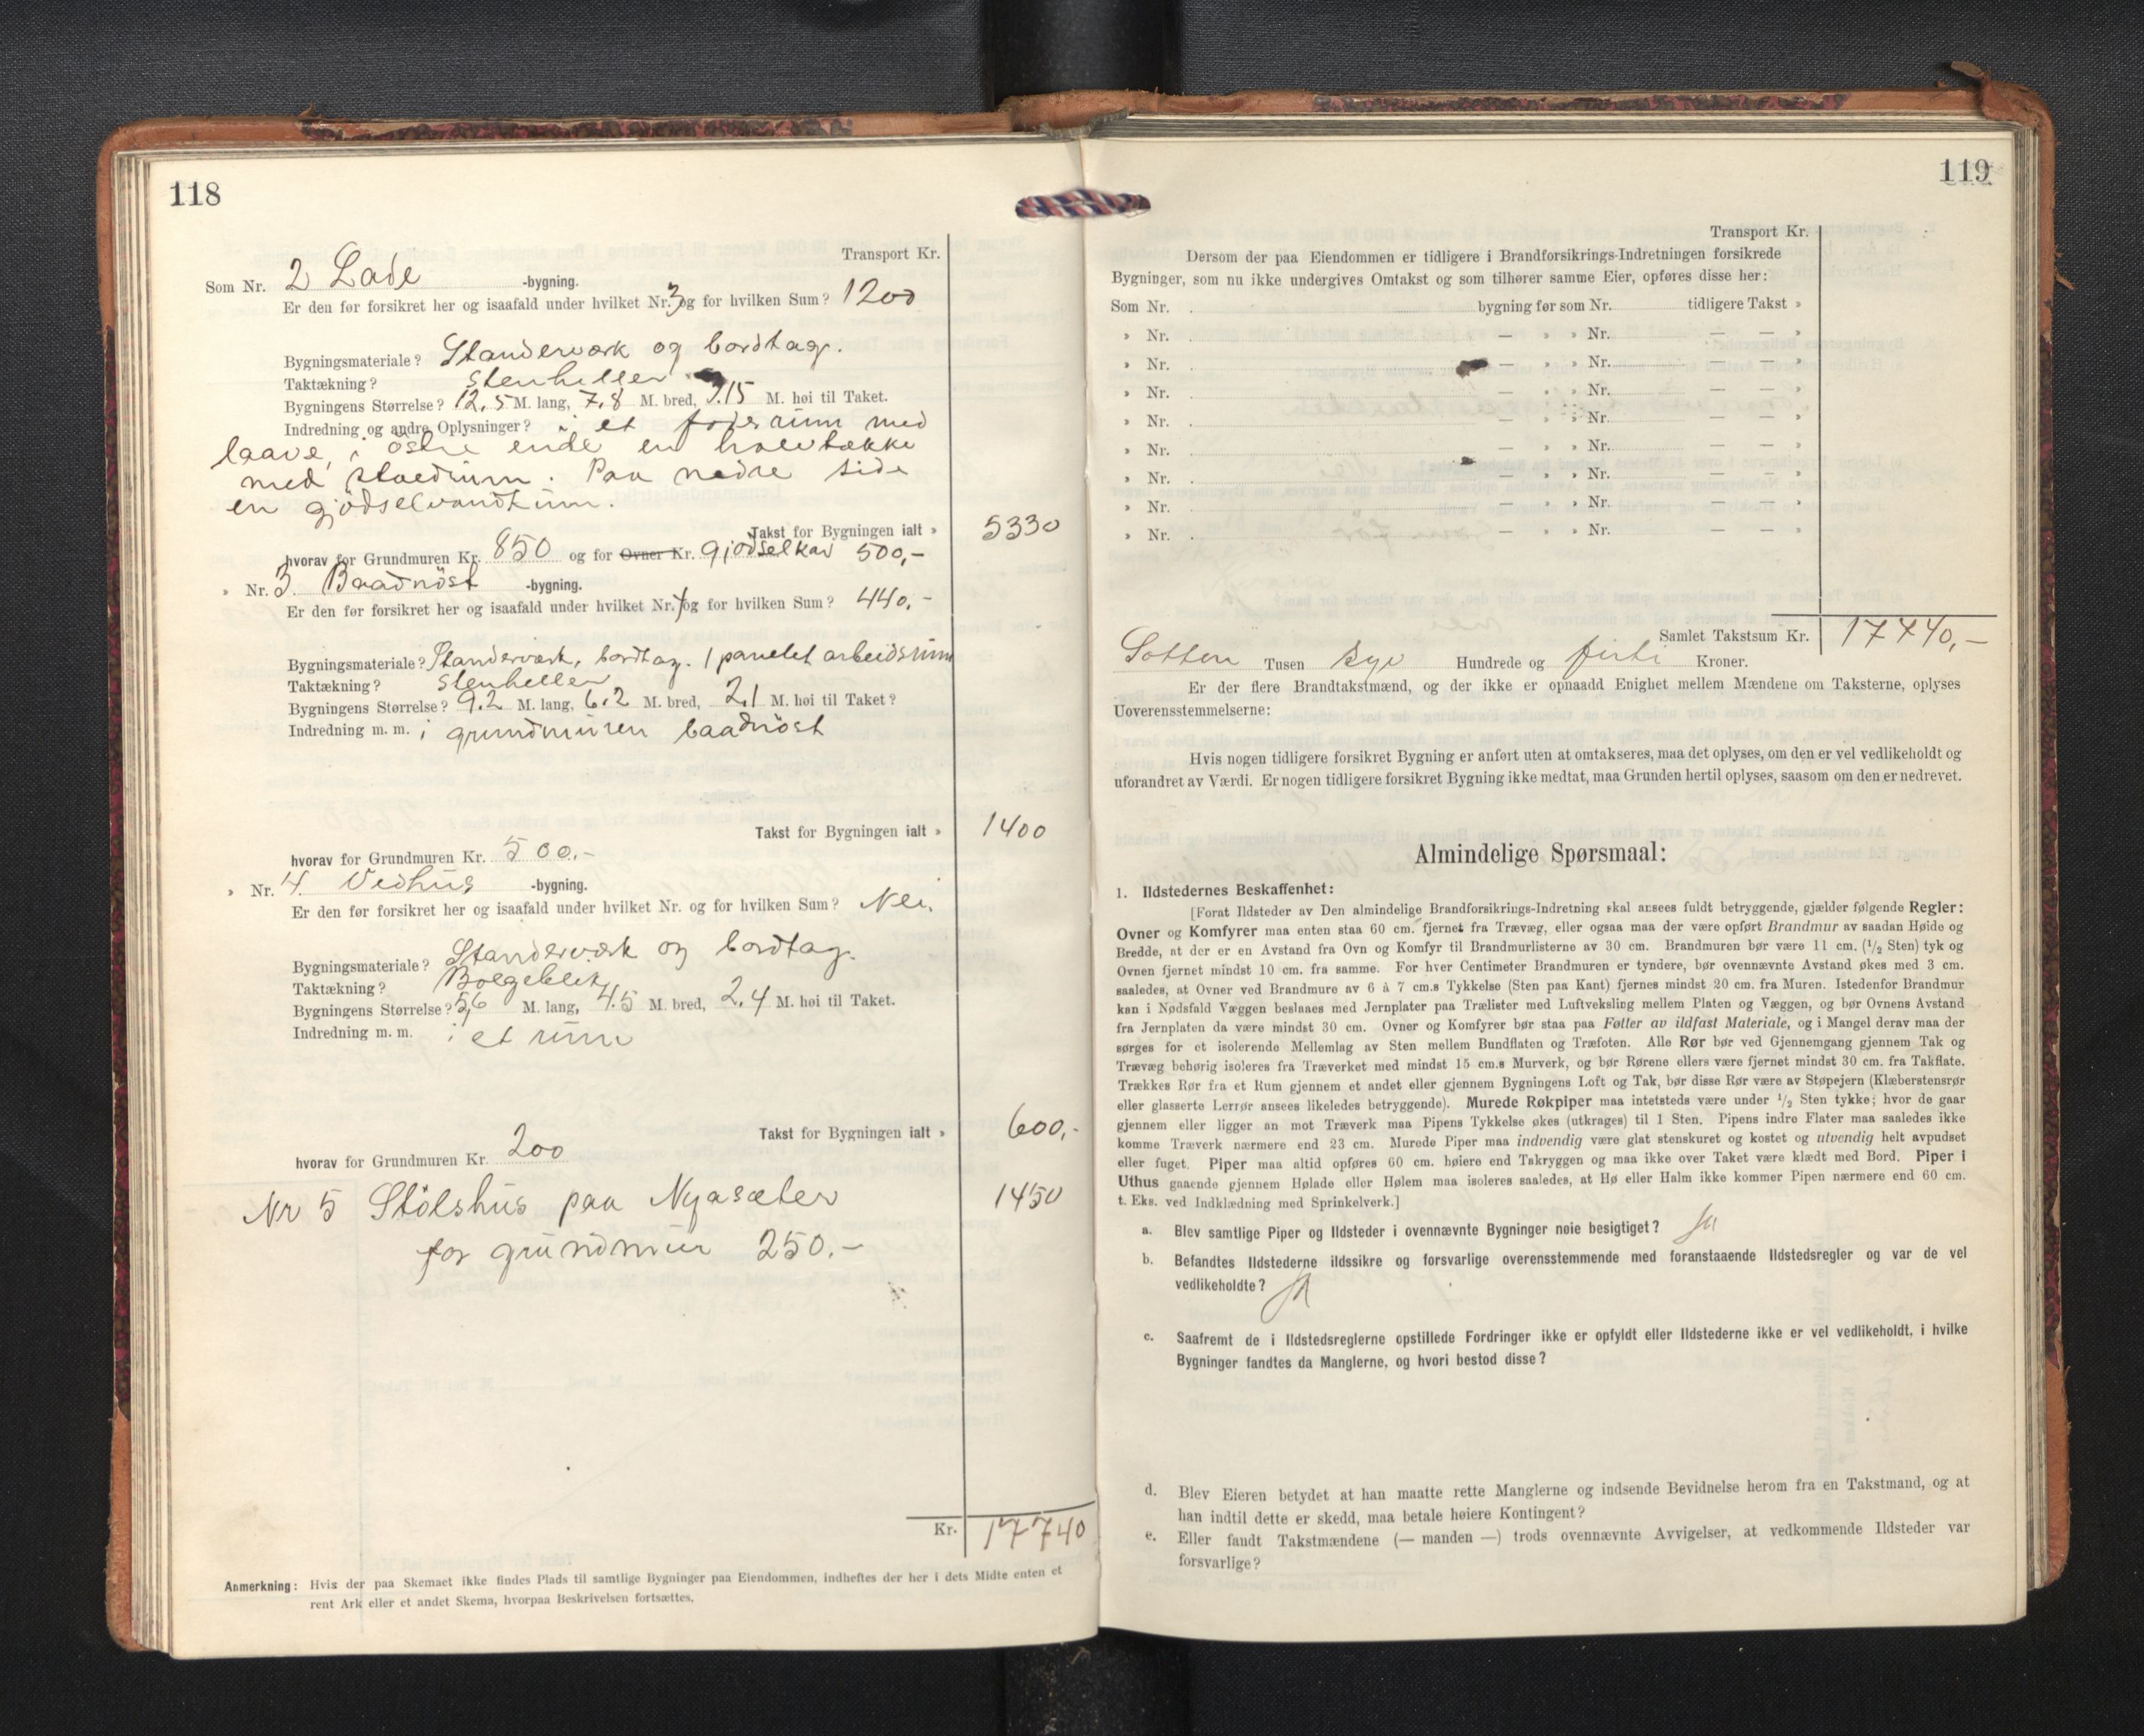 118
Transport Kr.
Som Nr. 2 Lade -bygning.
Er den før forsikret her og isaafald under hvilket Nr. 3 og for hvilken Sum? 1200
Bygningsmateriale? Standerværk og bordtag.
Taktækning? Stenheller
Bygningens Størrelse? 12,5 M. lang, 7,8 M. bred, 3.15 M. høi til Taket.
Indredning og andre Oplysninger? i et foderrum med
laave, i östre ende en
med stvedrum. Paa nedre side
en gjödselvandkum.
Takst for Bygningen ialt » 5330
hvorav for Grundmuren Kr. 850 og for Ovner Kr. gjödselkar 500,-
» Nr. 3. Baadnöst -bygning.
Er den før forsikret her og isaafald under hvilket Nr. og for hvilken Sum? 440,-
Bygningsmateriale? Standerværk, bordtag. 1 panelet arbeidsrum
Taktækning? Stenheller
Bygningens Størrelse? 9.2 M. lang, 6.2 M. bred, 2,1 M. høi til Taket?
Indredning m. m. i grundmuren baadnöst
Takst for Bygningen ialt » 1400
hvorav for Grundmuren Kr. 500,-
» Nr. 4. Vedhus -bygning.
Er den før forsikret her og isaafald under hvilket Nr. og for hvilken Sum? Nei.
Bygningsmateriale? Standerværk og bordtag.
Taktækning? Bølgeblek
Bygningens Størrelse? 5,6 M. lang, 4.5 M. bred, 2,4 M. høi til Taket.
Indredning m. m. i et rum
Takst for Bygningen ialt » 600,-
hvorav for Grundmuren Kr. 200
Nr 5 Stölshus paa Nyasæter 1450
for grundmur 250.-
Kr. 17740
Anmerkning: Hvis der paa Skemaet ikke findes Plads til samtlige Bygninger paa Eiendommen, indheftes der her i dets Midte enten et
rent Ark eller et andet Skema, hvorpaa Beskrivelsen fortsættes.
119
Transport Kr.
Dersom der paa Eiendommen er tidligere i Brandforsikrings-Indretningen forsikrede
Bygninger, som nu ikke undergives Omtakst og som tilhører samme Eier, opføres disse her:
Som Nr. bygning før som Nr. tidligere Takst »
» Nr. — » » Nr. — — »
» Nr. — » » Nr. — — »
» Nr. — » » Nr. — — »
» Nr. — » » Nr. — — »
» Nr. — » » Nr. — — »
» Nr. — » » Nr. — — »
» Nr. — » » Nr. — — »
» Nr. — » » Nr. — — »
Samlet Takstsum Kr. 17740,-
Sötten Tusen syv Hundrede og firti Kroner.
Er der flere Brandtakstmænd, og der ikke er opnaadd Enighet mellem Mændene om Taksterne, oplyses
Uoverensstemmelserne:
Hvis nogen tidligere forsikret Bygning er anført uten at omtakseres, maa det oplyses, om den er vel vedlikeholdt og
uforandret av Værdi. Er nogen tidligere forsikret Bygning ikke medtat, maa Grunden hertil oplyses, saasom om den er nedrevet.
Almindelige Spørsmaal:
1. Ildstedernes Beskaffenhet:
[Forat Ildsteder av Den almindelige Brandforsikrings-Indretning skal ansees fuldt betryggende, gjælder følgende Regler:
Ovner og Komfyrer maa enten staa 60 cm. fjernet fra Trævæg, eller ogsaa maa der være opført Brandmur av saadan Høide og
Bredde, at der er en Avstand fra Ovn og Komfyr til Brandmurlisterne av 30 cm. Brandmuren bør være 11 cm. (1/2 Sten) tyk og
Ovnen fjernet mindst 10 cm. fra samme. For hver Centimeter Brandmuren er tyndere, bør ovennævnte Avstand økes med 3 cm.
saaledes, at Ovner ved Brandmure av 6 à 7 cm.s Tykkelse (Sten paa Kant) fjernes mindst 20 cm. fra Muren. Istedenfor Brandmur
kan i Nødsfald Væggen beslaaes med Jernplater paa Trælister med Luftveksling mellem Platen og Væggen, og bør Ovnens Avstand
fra Jernplaten da være mindst 30 cm. Ovner og Komfyrer bør staa paa Føtter av ildfast Materiale, og i Mangel derav maa der
sørges for et isolerende Mellemlag av Sten mellem Bundflaten og Træfoten. Alle Rør bør ved Gjennemgang gjennem Tak og
Trævæg behørig isoleres fra Træverket med mindst 15 cm.s Murverk, og bør Rørene ellers være fjernet mindst 30 cm. fra Takflate.
Trækkes Rør fra et Rum gjennem et andet eller gjennem Bygningens Loft og Tak, bør disse Rør være av Støpejern (Klæberstensrør
eller glasserte Lerrør ansees likeledes betryggende). Murede Røkpiper maa intetsteds være under 1/2 Sten tykke; hvor de gaar
gjennem eller ligger an mot Træverk maa Pipens Tykkelse økes (utkrages) til 1 Sten. Pipens indre Flater maa saaledes ikke
komme Træverk nærmere end 23 cm. Murede Piper maa indvendig være glat stenskuret og kostet og utvendig helt avpudset
eller fuget. Piper maa altid opføres 60 cm. høiere end Takryggen og maa ikke over Taket være klædt med Bord. Piper i
Uthus gaaende gjennem Hølade eller Hølem maa isoleres saaledes, at Hø eller Halm ikke kommer Pipen nærmere end 60 cm.
t. Eks. ved Indklædning med Sprinkelverk.]
a. Blev samtlige Piper og Ildsteder i ovennævnte Bygninger nøie besigtiget? Ja
b. Befandtes Ildstederne ildssikre og forsvarlige overensstemmende med foranstaaende Ildstedsregler og var de vel
vedlikeholdte? Ja
c. Saafremt de i Ildstedsreglerne opstillede Fordringer ikke er opfyldt eller Ildstederne ikke er vel vedlikeholdt, i hvilke
Bygninger fandtes da Manglerne, og hvori bestod disse?
d. Blev Eieren betydet at han maatte rette Manglerne og indsende Bevidnelse herom fra en Takstmand, og at
han indtil dette er skedd, maa betale høiere Kontingent?
e. Eller fandt Takstmændene (— manden —) trods ovennævnte Avvigelser, at vedkommende Ildsteder var
forsvarlige?